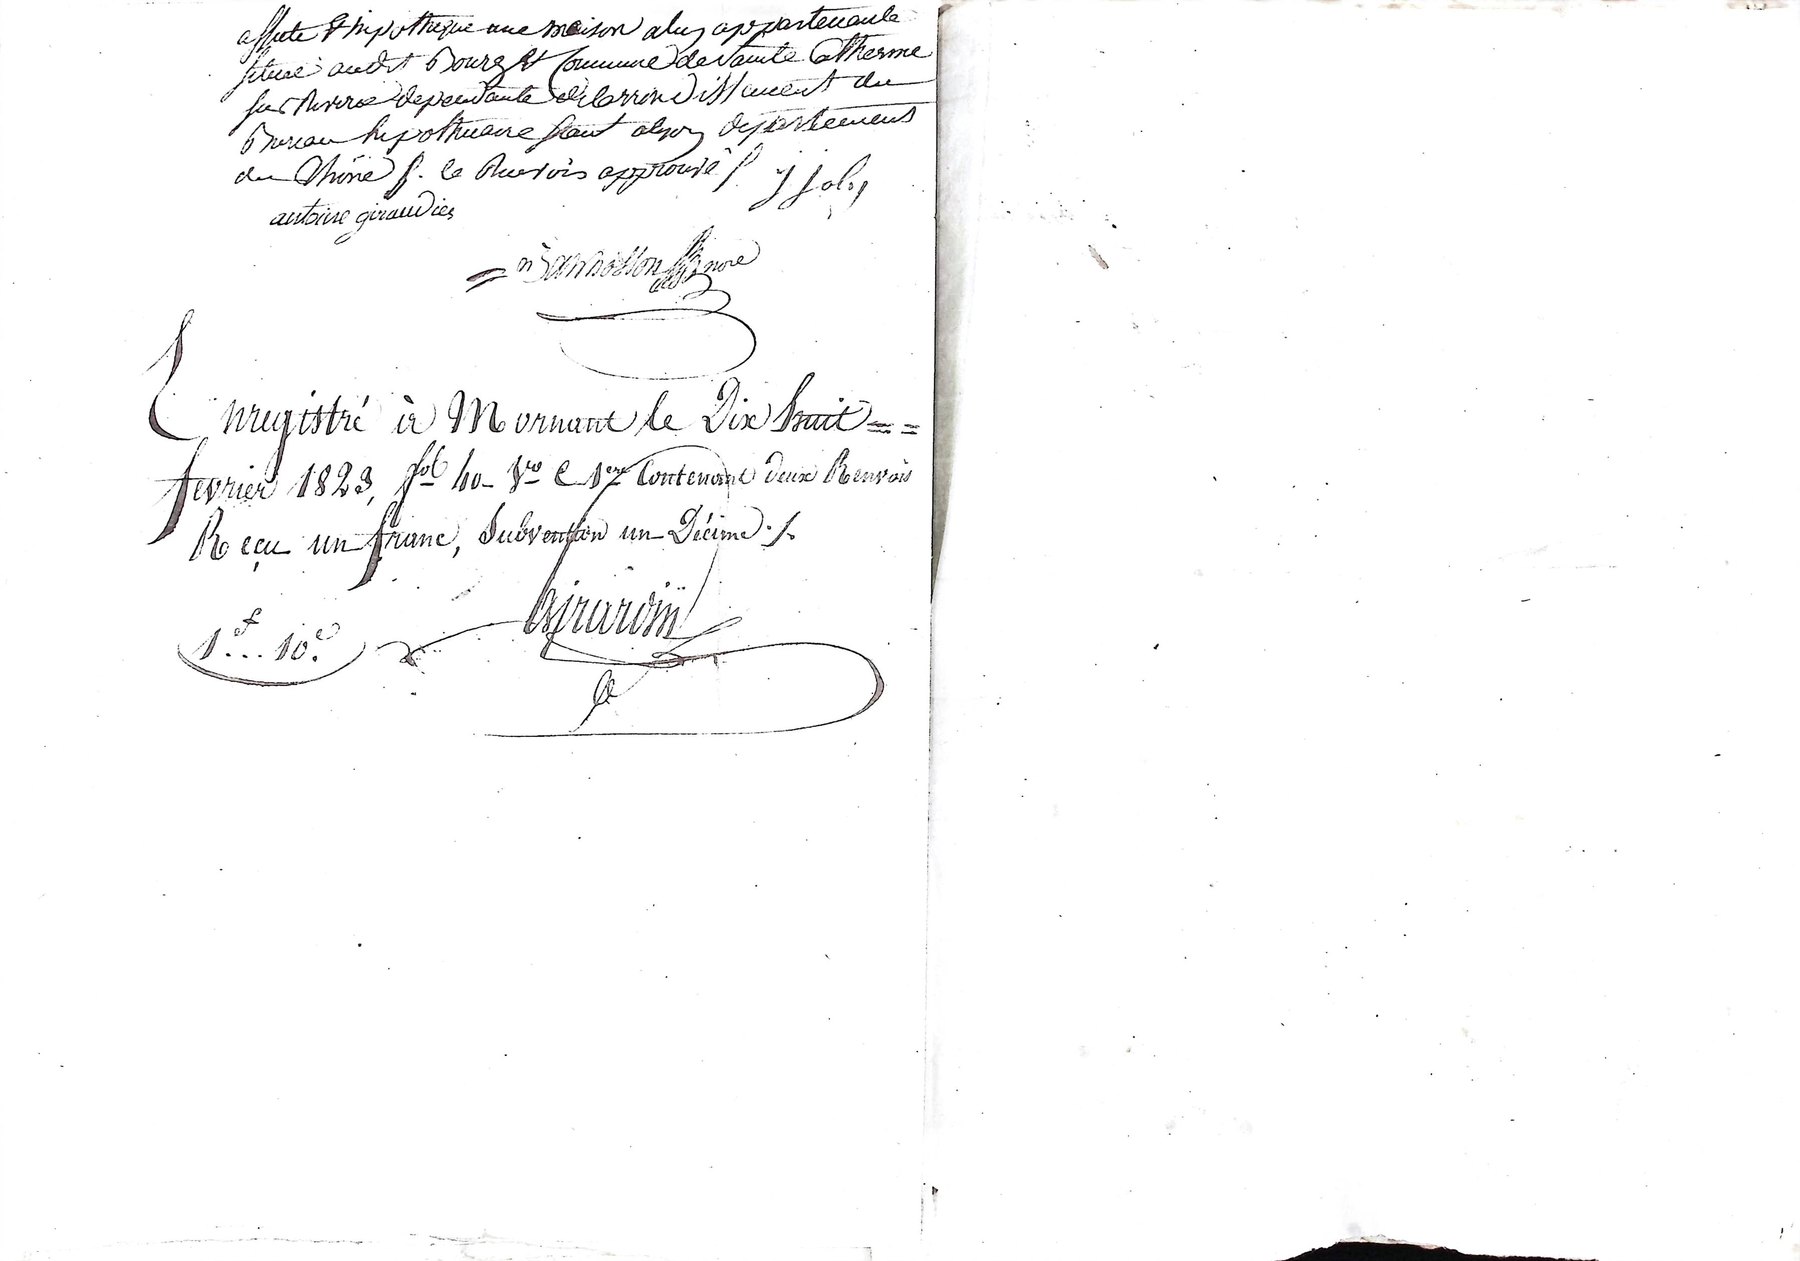 affecte & hipotheque une maison a luy appartenante
situeé audit Bourg et Commune de Sainte Catherine
sur Riviere dependante de larrondissement du
Bureau hipothecaire seant a lyon departement
du Rhône ./. le Renvois approuvé ./. j joly
antoine giraudier
Enregistré à Mornant le Dix huit ==
fevrier 1823, fol 40 Vo C 1ere Contenant deux Renvois
Reçu un franc, Subvention un Décime ./.
Girardin
1f... 10c.